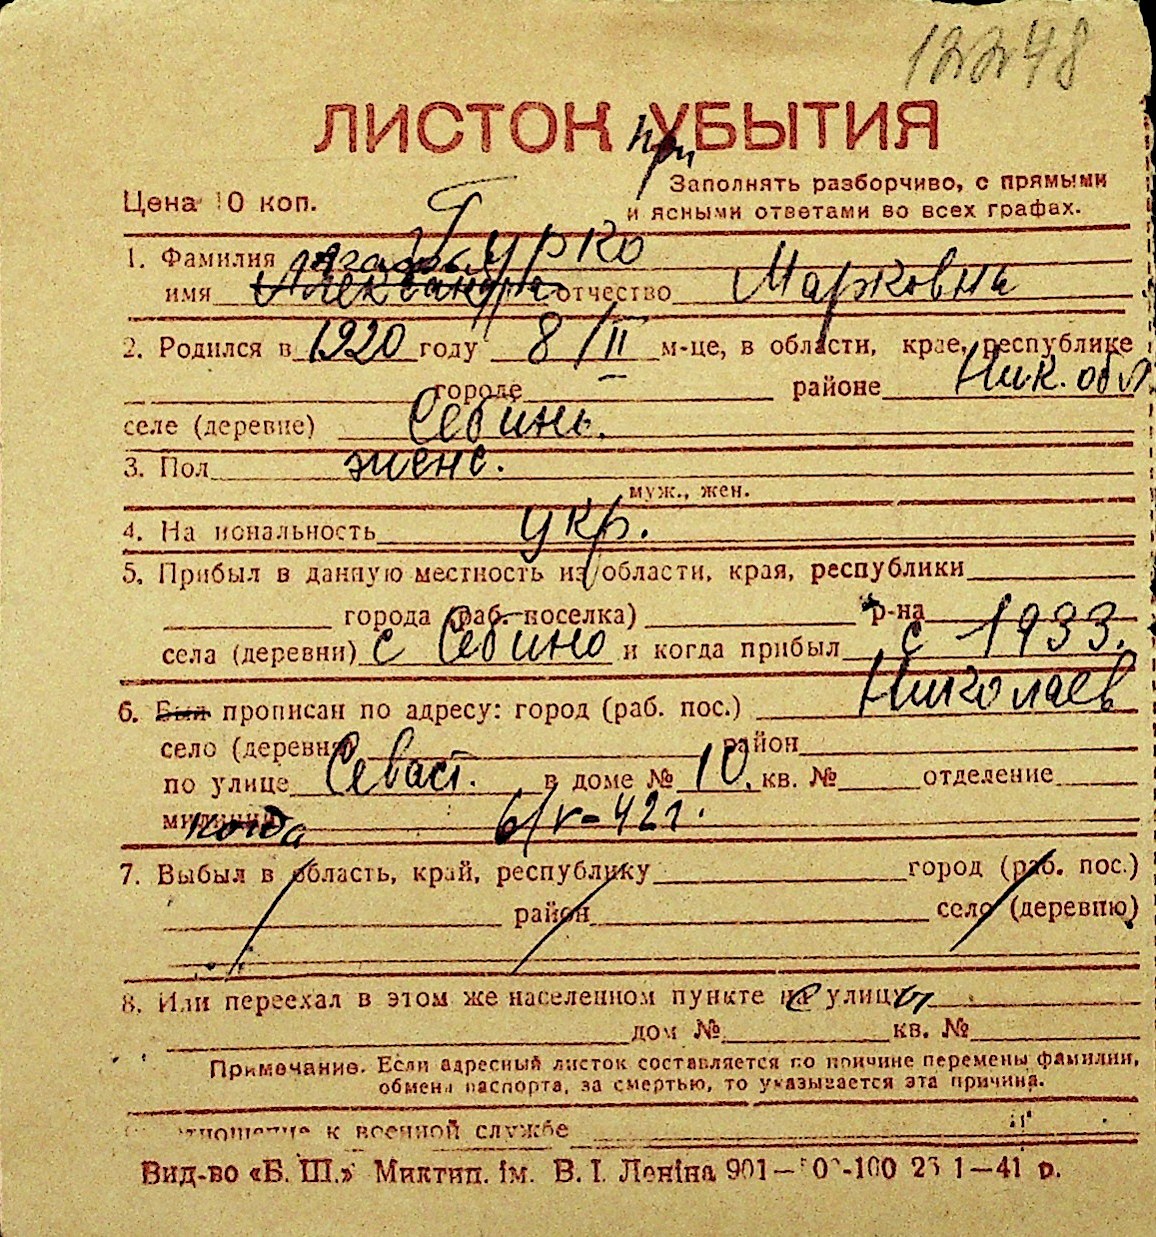 12248
ЛИСТОК УБЫТИЯ
при
Цена 10 коп.
Заполнять разборчиво, с прямыми
и ясными ответами во всех графах.
1. Фамилия Гурко
имя Александра отчество Марковна
2. Родился в 1920 году 8/II м-це, в области, крае, республике
городе районе Ник. обл.
селе (деревне) Себинь.
3. Пол женс.
муж., жен.
4. На иональность укр.
5. Прибыл в данную местность из области, края, республики
города (раб. поселка) р-на
села (деревни) с Себино и когда прибыл с 1933.
6. Был прописан по адресу: город (раб. пос.) Николаев
село (деревня) район
по улице Севаст. в доме № 10. кв. № отделение
милиции когда 6/V-42 г.
7. Выбыл в область, край, республику город (раб. пос.)
район село (деревню)
8. Или переехал в этом же населенном пункте на с улицу ы
дом № кв. №
Примечание. Если адресный листок составляется по причине перемены фамилии,
обмена паспорта, за смертью, то указывается эта причина.
отношение к военной службе
Вид-во «Б. Ш.» Миктип. ім. В. І. Леніна 901— -100 1—41 р.